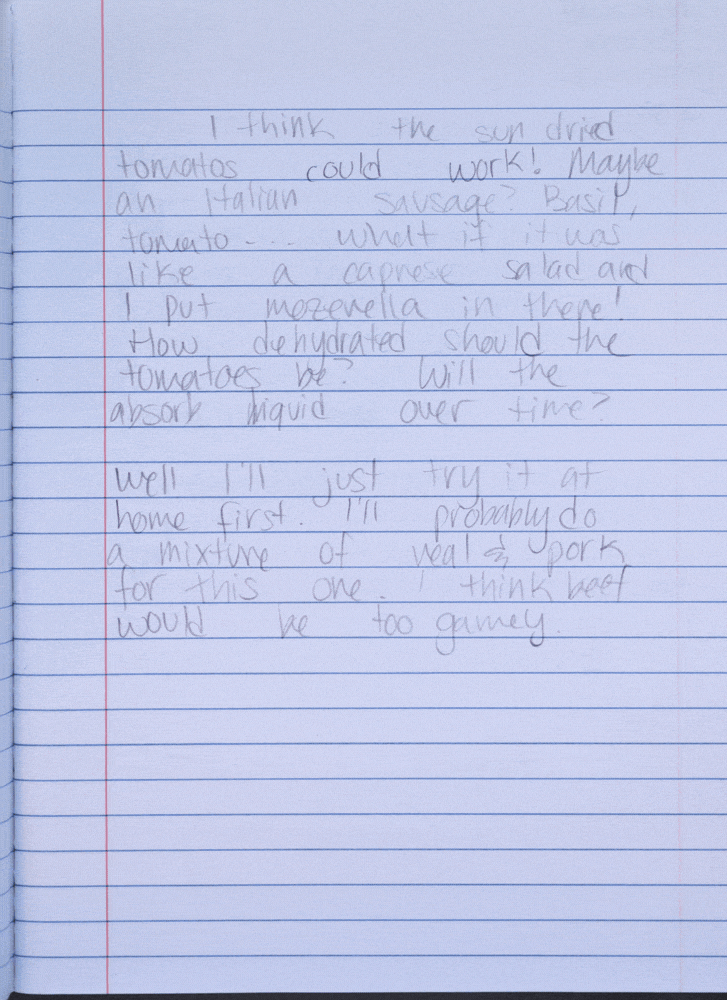 I think the sun dried
tomatos could work! Maybe
an Italian sausage? Basil,
tomato.... what if it was
like a caprese salad and
I put mozerella in there!
How dehydrated should the
tomatoes be? Will the
absorb liquid over time?
well I'll just try it at
home first. I'll probably do
a mixture of veal & pork
for this one. I think beef
would be too gamey.